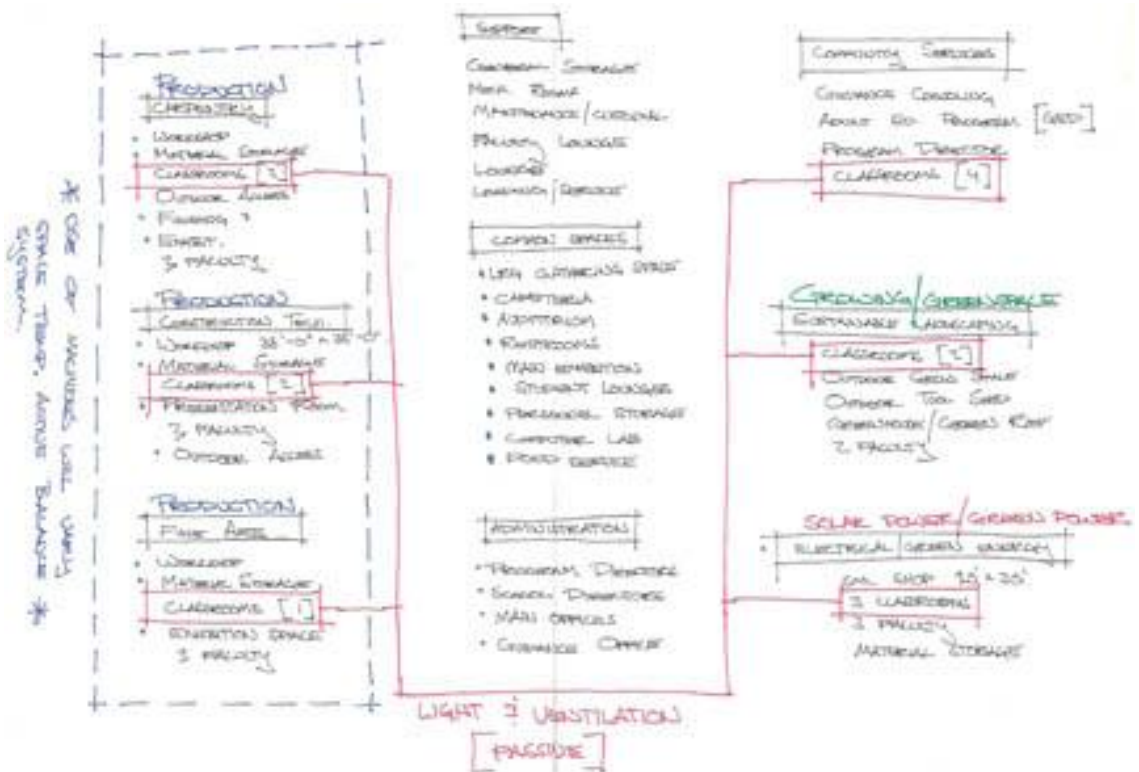 PRODUCTION
CARPENTRY
• WORKSHOP
• MATERIAL STORAGE
CLASSROOMS
• OUTDOOR ACCESS
• FINISHING
• EXHIBIT.
3 FACULTY
PRODUCTION
CONSTRUCTION TECH.
• WORKSHOP
• MATERIAL STORAGE
CLASSROOMS [2]
• PRESENTATION ROOM
3 FACULTY
• OUTDOOR ACCESS
PRODUCTION
FINE ARTS
• WORKSHOP
• MATERIAL STORAGE
CLASSROOMS [1]
• EXHIBITION SPACE
3 FACULTY
* USE OF MACHINES WILL VARY
SPACE TEMP. BALANCE *
SYSTEM.
SUPPORT
STORAGE
MECH. ROOMS
MAINTENANCE/CUSTODIAL
FACULTY LOUNGE
LOCKERS
LOADING/SERVICE
COMMON SPACES
GATHERING SPACE
• CAFETERIA
• AUDITORIUM
• RESTROOMS
• MAIN EXHIBITION
• STUDENT LOUNGES
• PERSONAL STORAGE
• COMPUTER LAB
• FOOD SERVICE
ADMINISTRATION
• PROGRAM DIRECTORS
• SCHOOL DIRECTORS
• MAIN OFFICES
• GUIDANCE OFFICES
COMMUNITY SERVICES
GUIDANCE
ADULT ED. PROGRAM [GED]
PROGRAM DIRECTOR
CLASSROOMS [4]
GROWING/GREENSPACE
SUSTAINABLE LANDSCAPING
CLASSROOMS [2]
OUTDOOR GROW SPACE
OUTDOOR TOOL SHED
GREENHOUSE/GREEN ROOF
2 FACULTY
SOLAR POWER/GREEN POWER
• ELECTRICAL/GREEN ENERGY
SHOP
3 CLASSROOMS
3 FACULTY
MATERIAL STORAGE
LIGHT & VENTILATION
[PASSIVE]